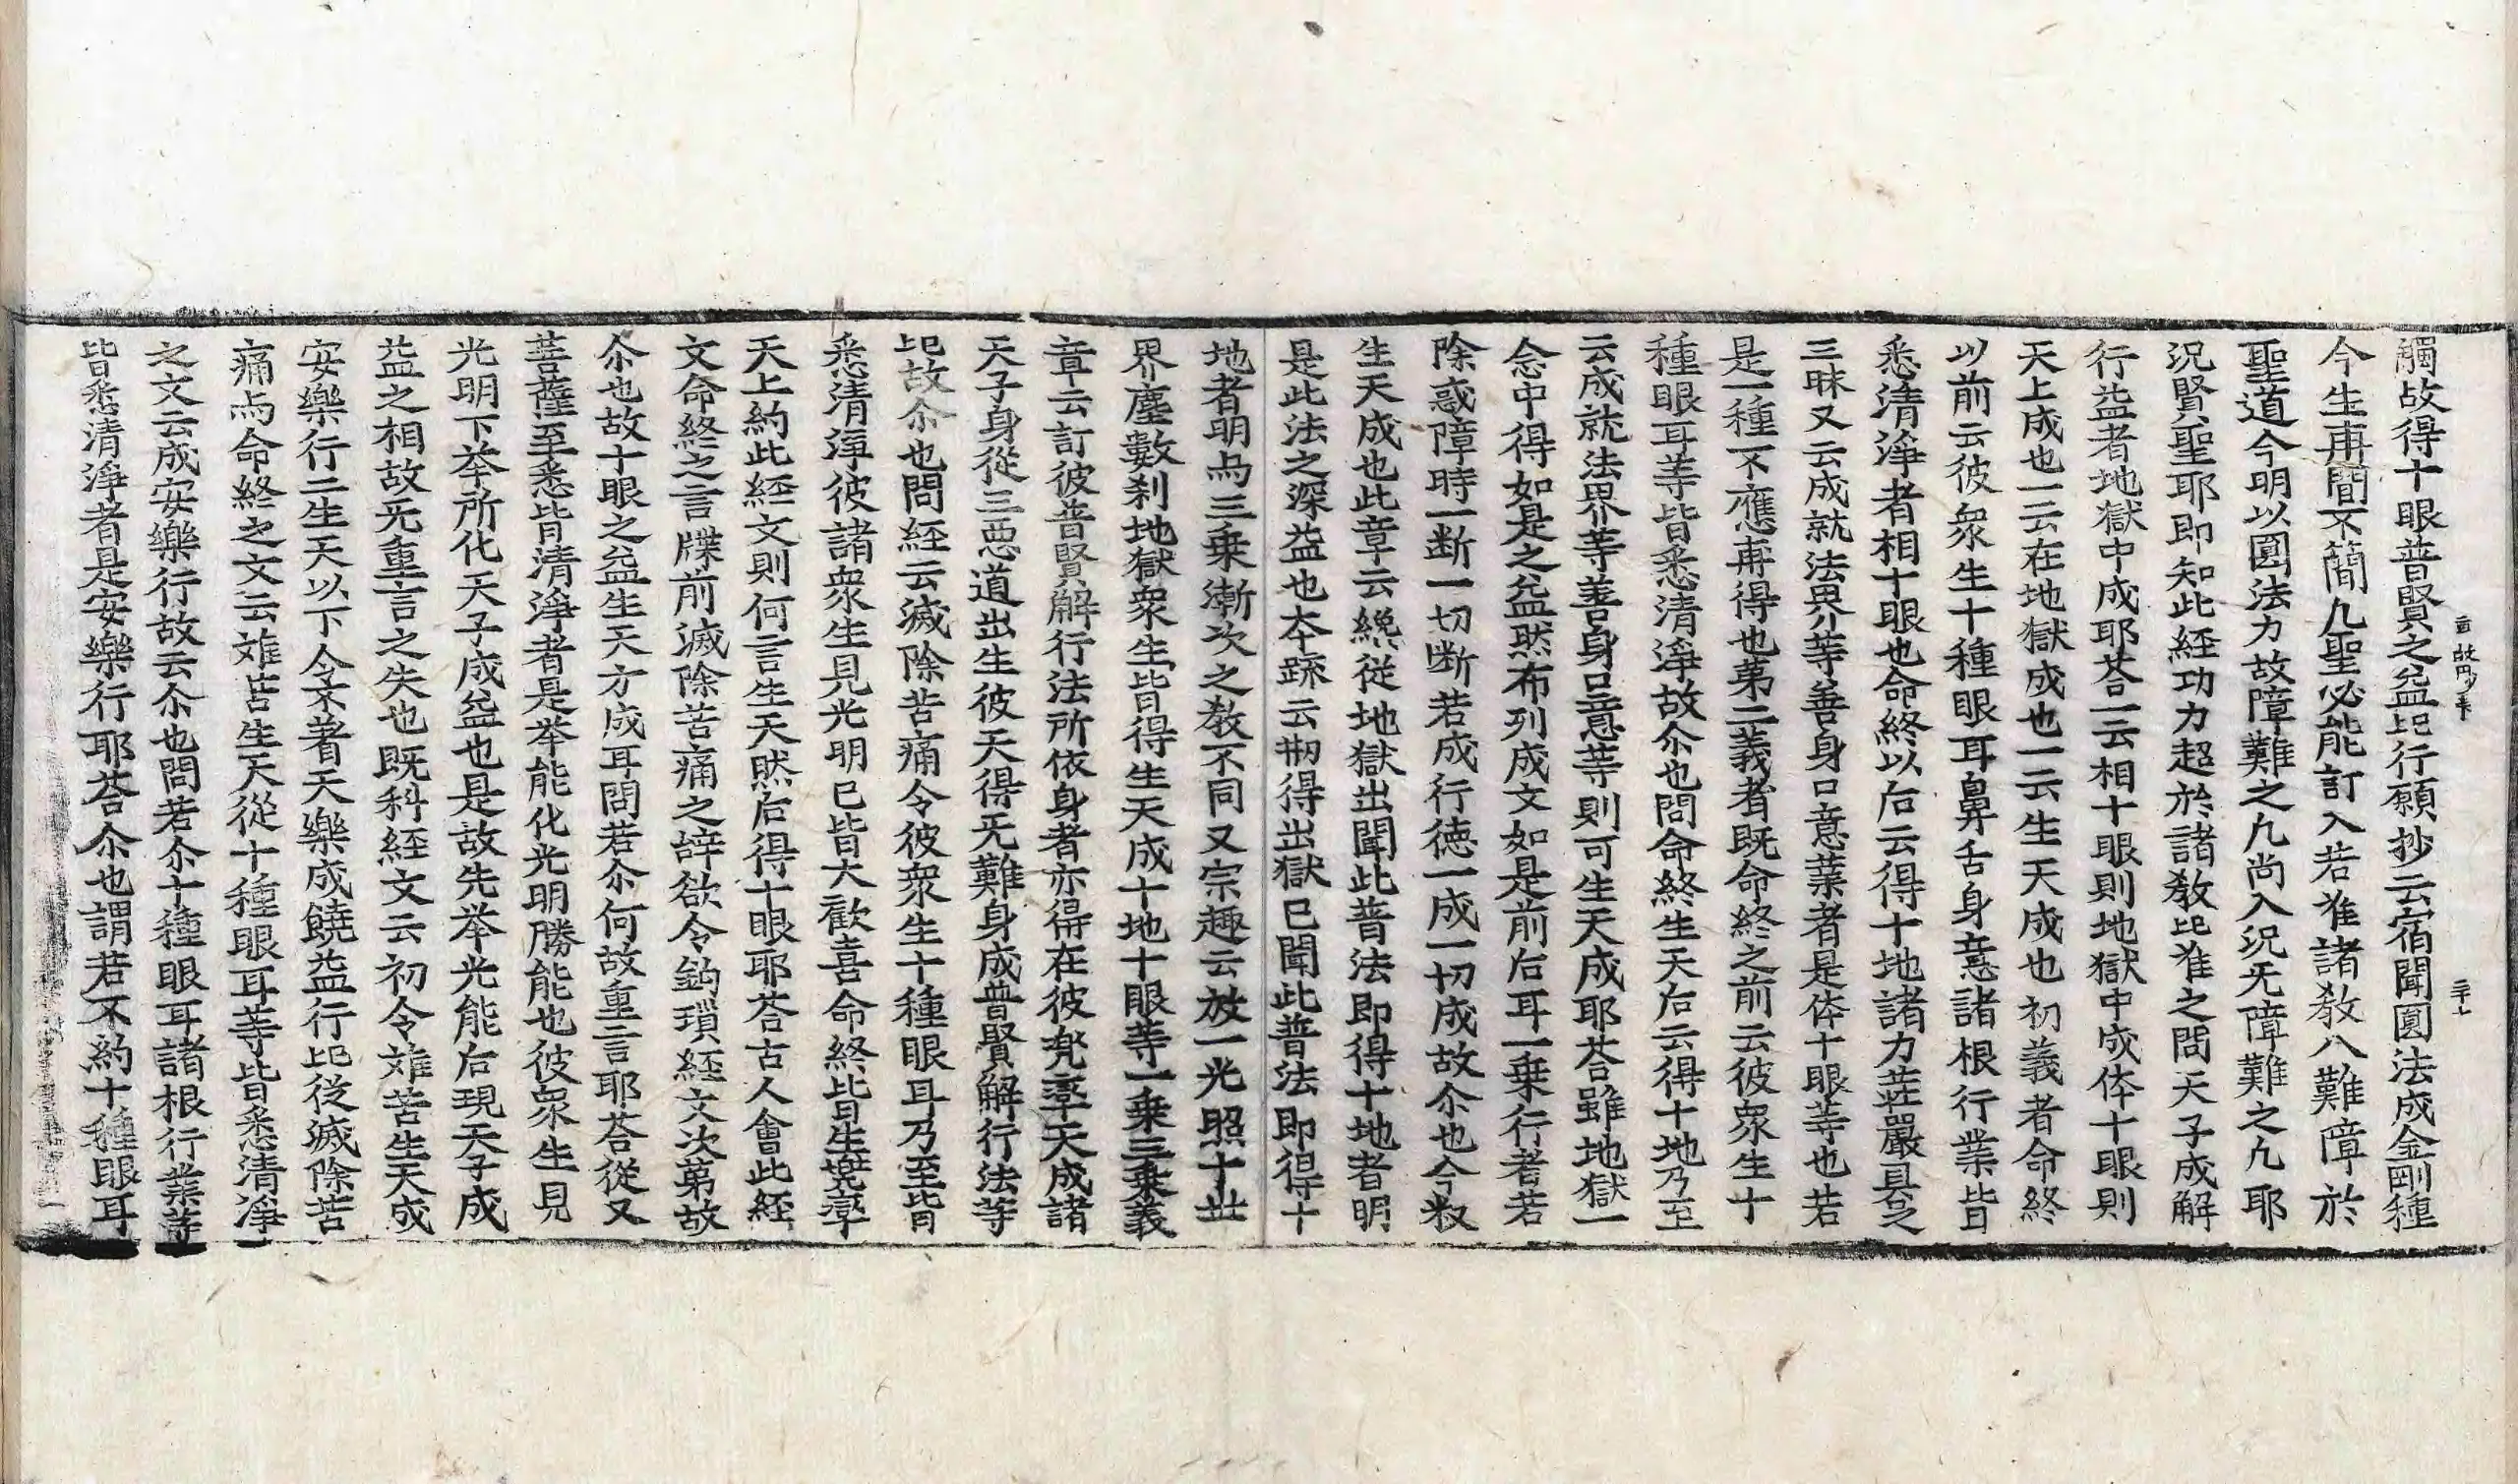 觸故得十眼普賢之益配行願抄云宿聞圓法成金剛種
今生再聞不簡凡聖必能訂入若准諸教八難障於
聖道今明以圓法力故障難之凡尚入况无障難之凡耶
况賢聖耶即知此経功力超於諸教比准之問天子成解
行益者地獄中成耶荅一云相十眼則地獄中成体十眼則
天上成也一云在地獄成也一云生天成也初義者命終
以前云彼衆生十種眼耳鼻舌身意諸根行業皆
悉清淨者相十眼也命終以后云得十地諸力莊嚴具足
三昧又云成就法界等善身口意業者是体十眼等也若
是一種不應再得也第二義者既命終之前云彼衆生十
種眼耳等皆悉清淨故尒也問命終生天后云得十地乃至
云成就法界等善身口意等則可生天成耶荅雖地獄一
念中得如是之益然布列成文如是前后耳一乗行者若
除惑障時一断一切断若成行徳一成一切成故尒也今叙
生天成也此章云纔從地獄出聞此普法即得十地者明
是此法之深益也本䟽云㓝得出獄已聞此普法即得十
地者明為三乗漸次之教不同又宗趣云放一光照十世
界塵數刹地獄衆生皆得生天成十地十眼等一乗三乗義
章云訂彼普賢解行法所依身者亦得在彼兜率天成諸
天子身從三惡道出生彼天得无難身成普賢解行法等
配故尒也問経云滅除苦痛令彼衆生十種眼耳乃至皆
悉清淨彼諸衆生見光明已皆大歡喜命終皆生兜率
天上約此経文則何言生天然后得十眼耶荅古人會此経
文命終之言牒前滅除苦痛之辝欲令鈎瑣経文次第故
尒也故十眼之益生天方成耳問若尒何故重言耶荅從又
菩薩至悉皆清淨者是举能化光明勝能也彼衆生見
光明下举所化天子成益也是故先举光能后現天子成
益之相故无重言之失也既科経文云初令䧹苦生天成
安樂行二生天以下令不著天樂成饒益行配從滅除苦
痛為命終之文云䧹苦生天從十種眼耳等皆悉清淨
之文云成安樂行故云尒也問若尒十種眼耳諸根行業等
皆悉清淨者是安樂行耶荅尒也謂若不約十種眼耳